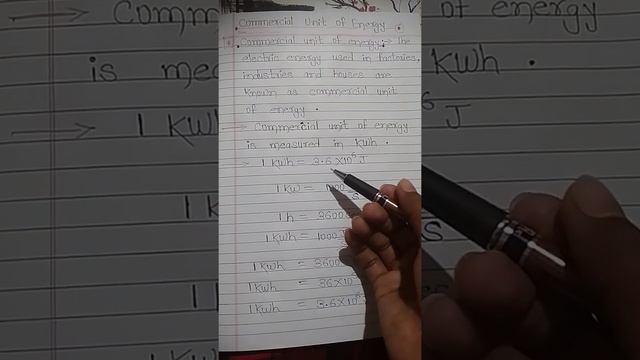 Commercial Unit of Energy
Commercial unit of energy :→ The
electric energy used in factories,
industries and houses are
known as commercial unit
of energy .
→ Commercial unit of energy
is measured in kWh .
→ 1 kWh = 3.6 × 10⁶ J
1 kW =
1 h = 3600
1 kWh = 1000
1 kWh = 3600
1 kWh = 36 × 10
1 kWh = 3.6 × 10⁶